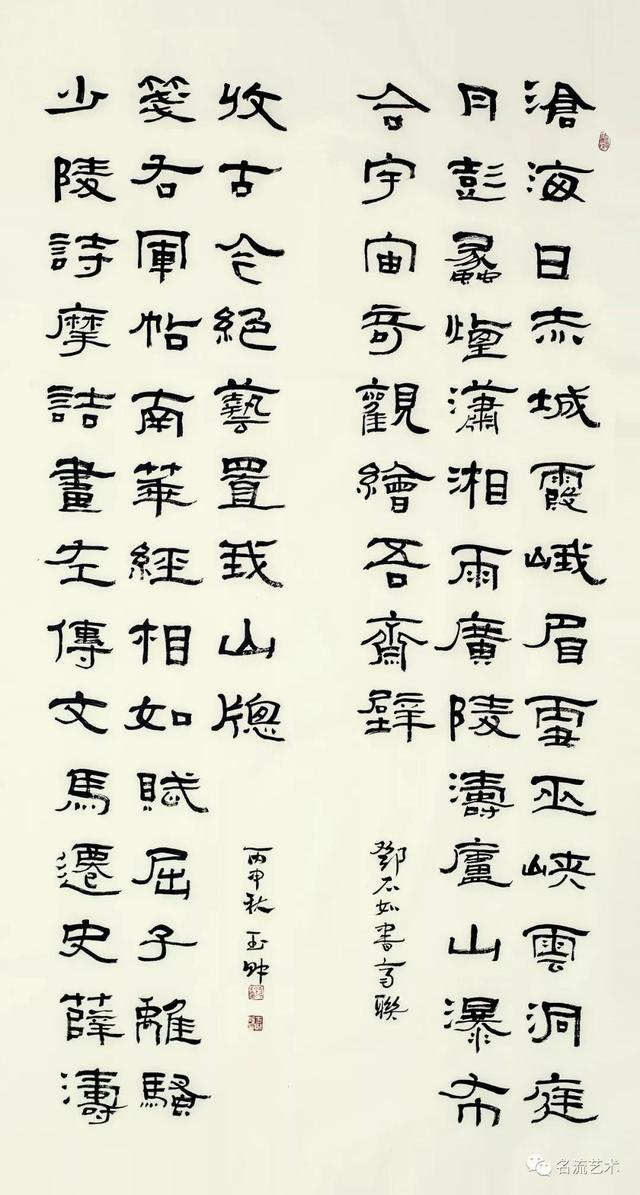 滄海日赤城霞峨眉雪巫峽雲洞庭
月彭蠡煙瀟湘雨廣陵濤廬山瀑布
合宇宙奇觀繪吾齋壁
鄧石如書房聯
少陵詩摩詰畫左傳文馬遷史薛濤
箋右軍帖南華經相如賦屈子離騷
收古今絕藝置我山牕
丙申秋玉
名流艺术